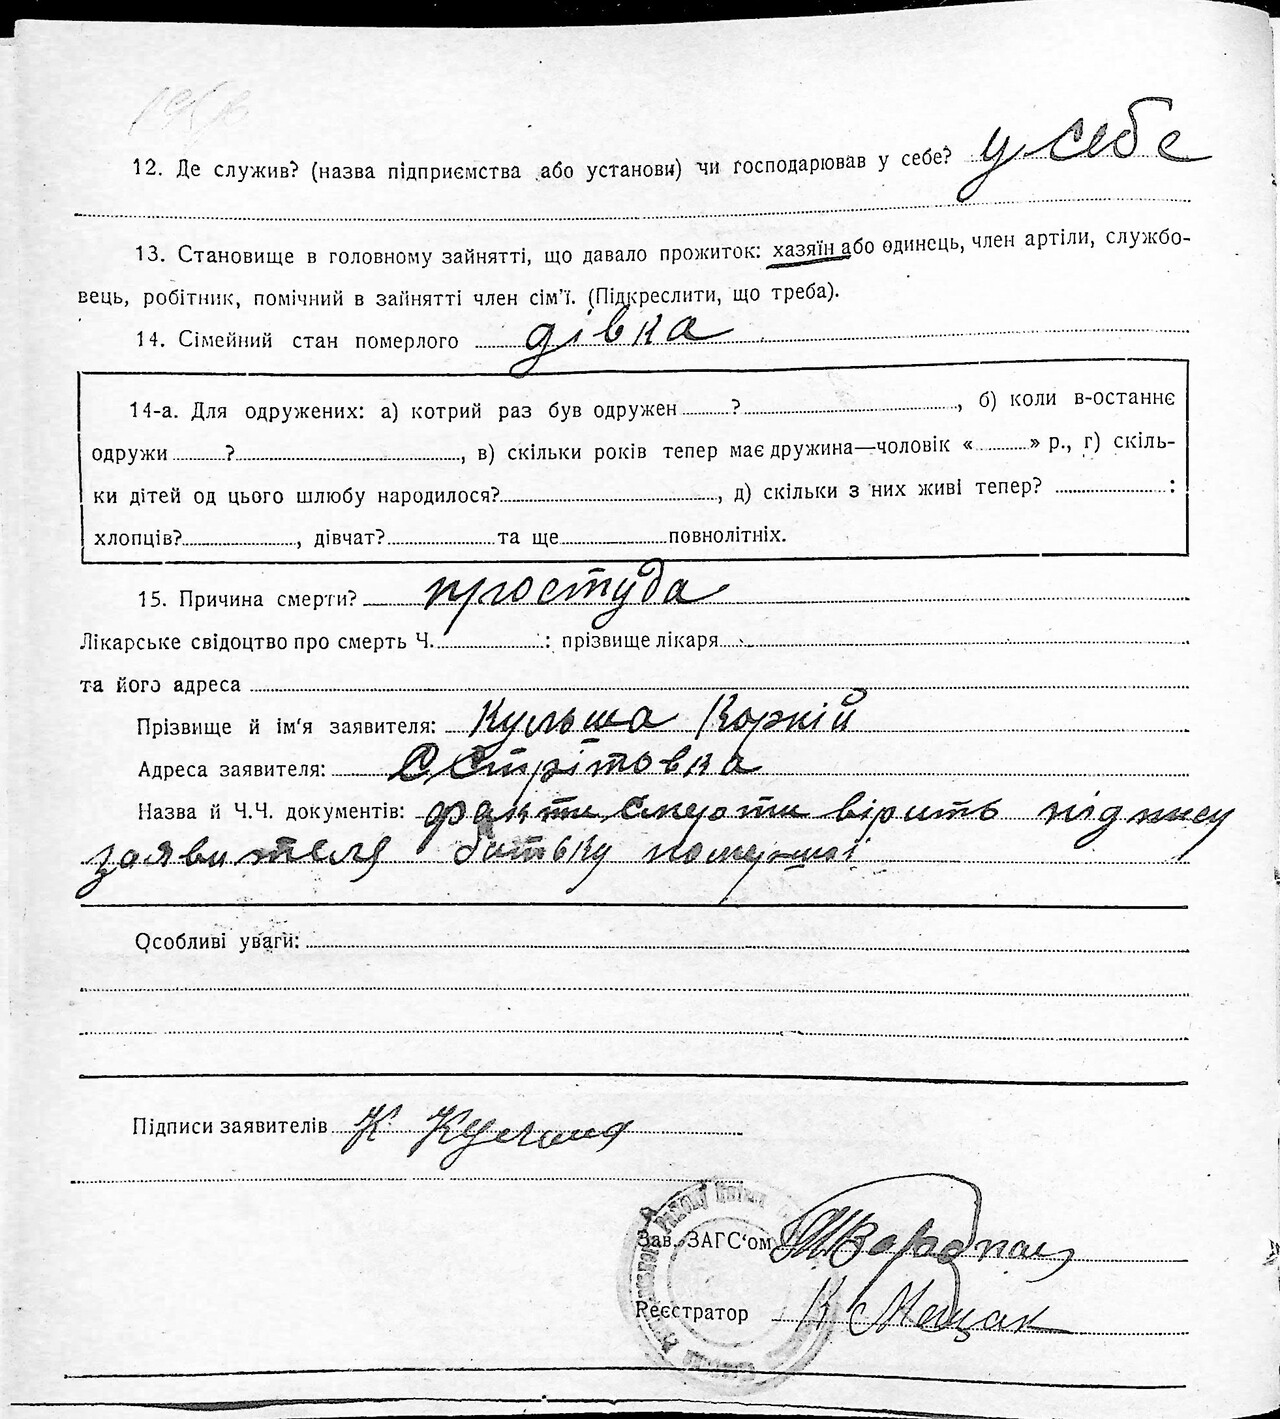 12. Де служив? (назва підприємства або установи) чи господарював у себе? у себе
13. Становище в головному зайнятті, що давало прожиток: хазяїн або одинець, член артіли, службо-
вець, робітник, помічний в зайнятті член сім'ї. (Підкреслити, що треба).
14. Сімейний стан померлого дівка
14-а. Для одружених: а) котрий раз був одружен ? , б) коли в-останнє
одружи ? , в) скільки років тепер має дружина—чоловік « » р., г) скіль-
ки дітей од цього шлюбу народилося? , д) скільки з них живі тепер? :
хлопців? , дівчат? та ще повнолітніх.
15. Причина смерти? простуда
Лікарське свідоцтво про смерть Ч. : прізвище лікаря
та його адреса
Прізвище й ім'я заявителя: Кульша Корній
Адреса заявителя: С Стрітовка
Назва й Ч.Ч. документів: факти смерти вірить підпису
заявителя батьку помершої
Особливі уваги:
Підписи заявителів К Кульша
Зав. ЗАГС'ом
Реєстратор К Мецак